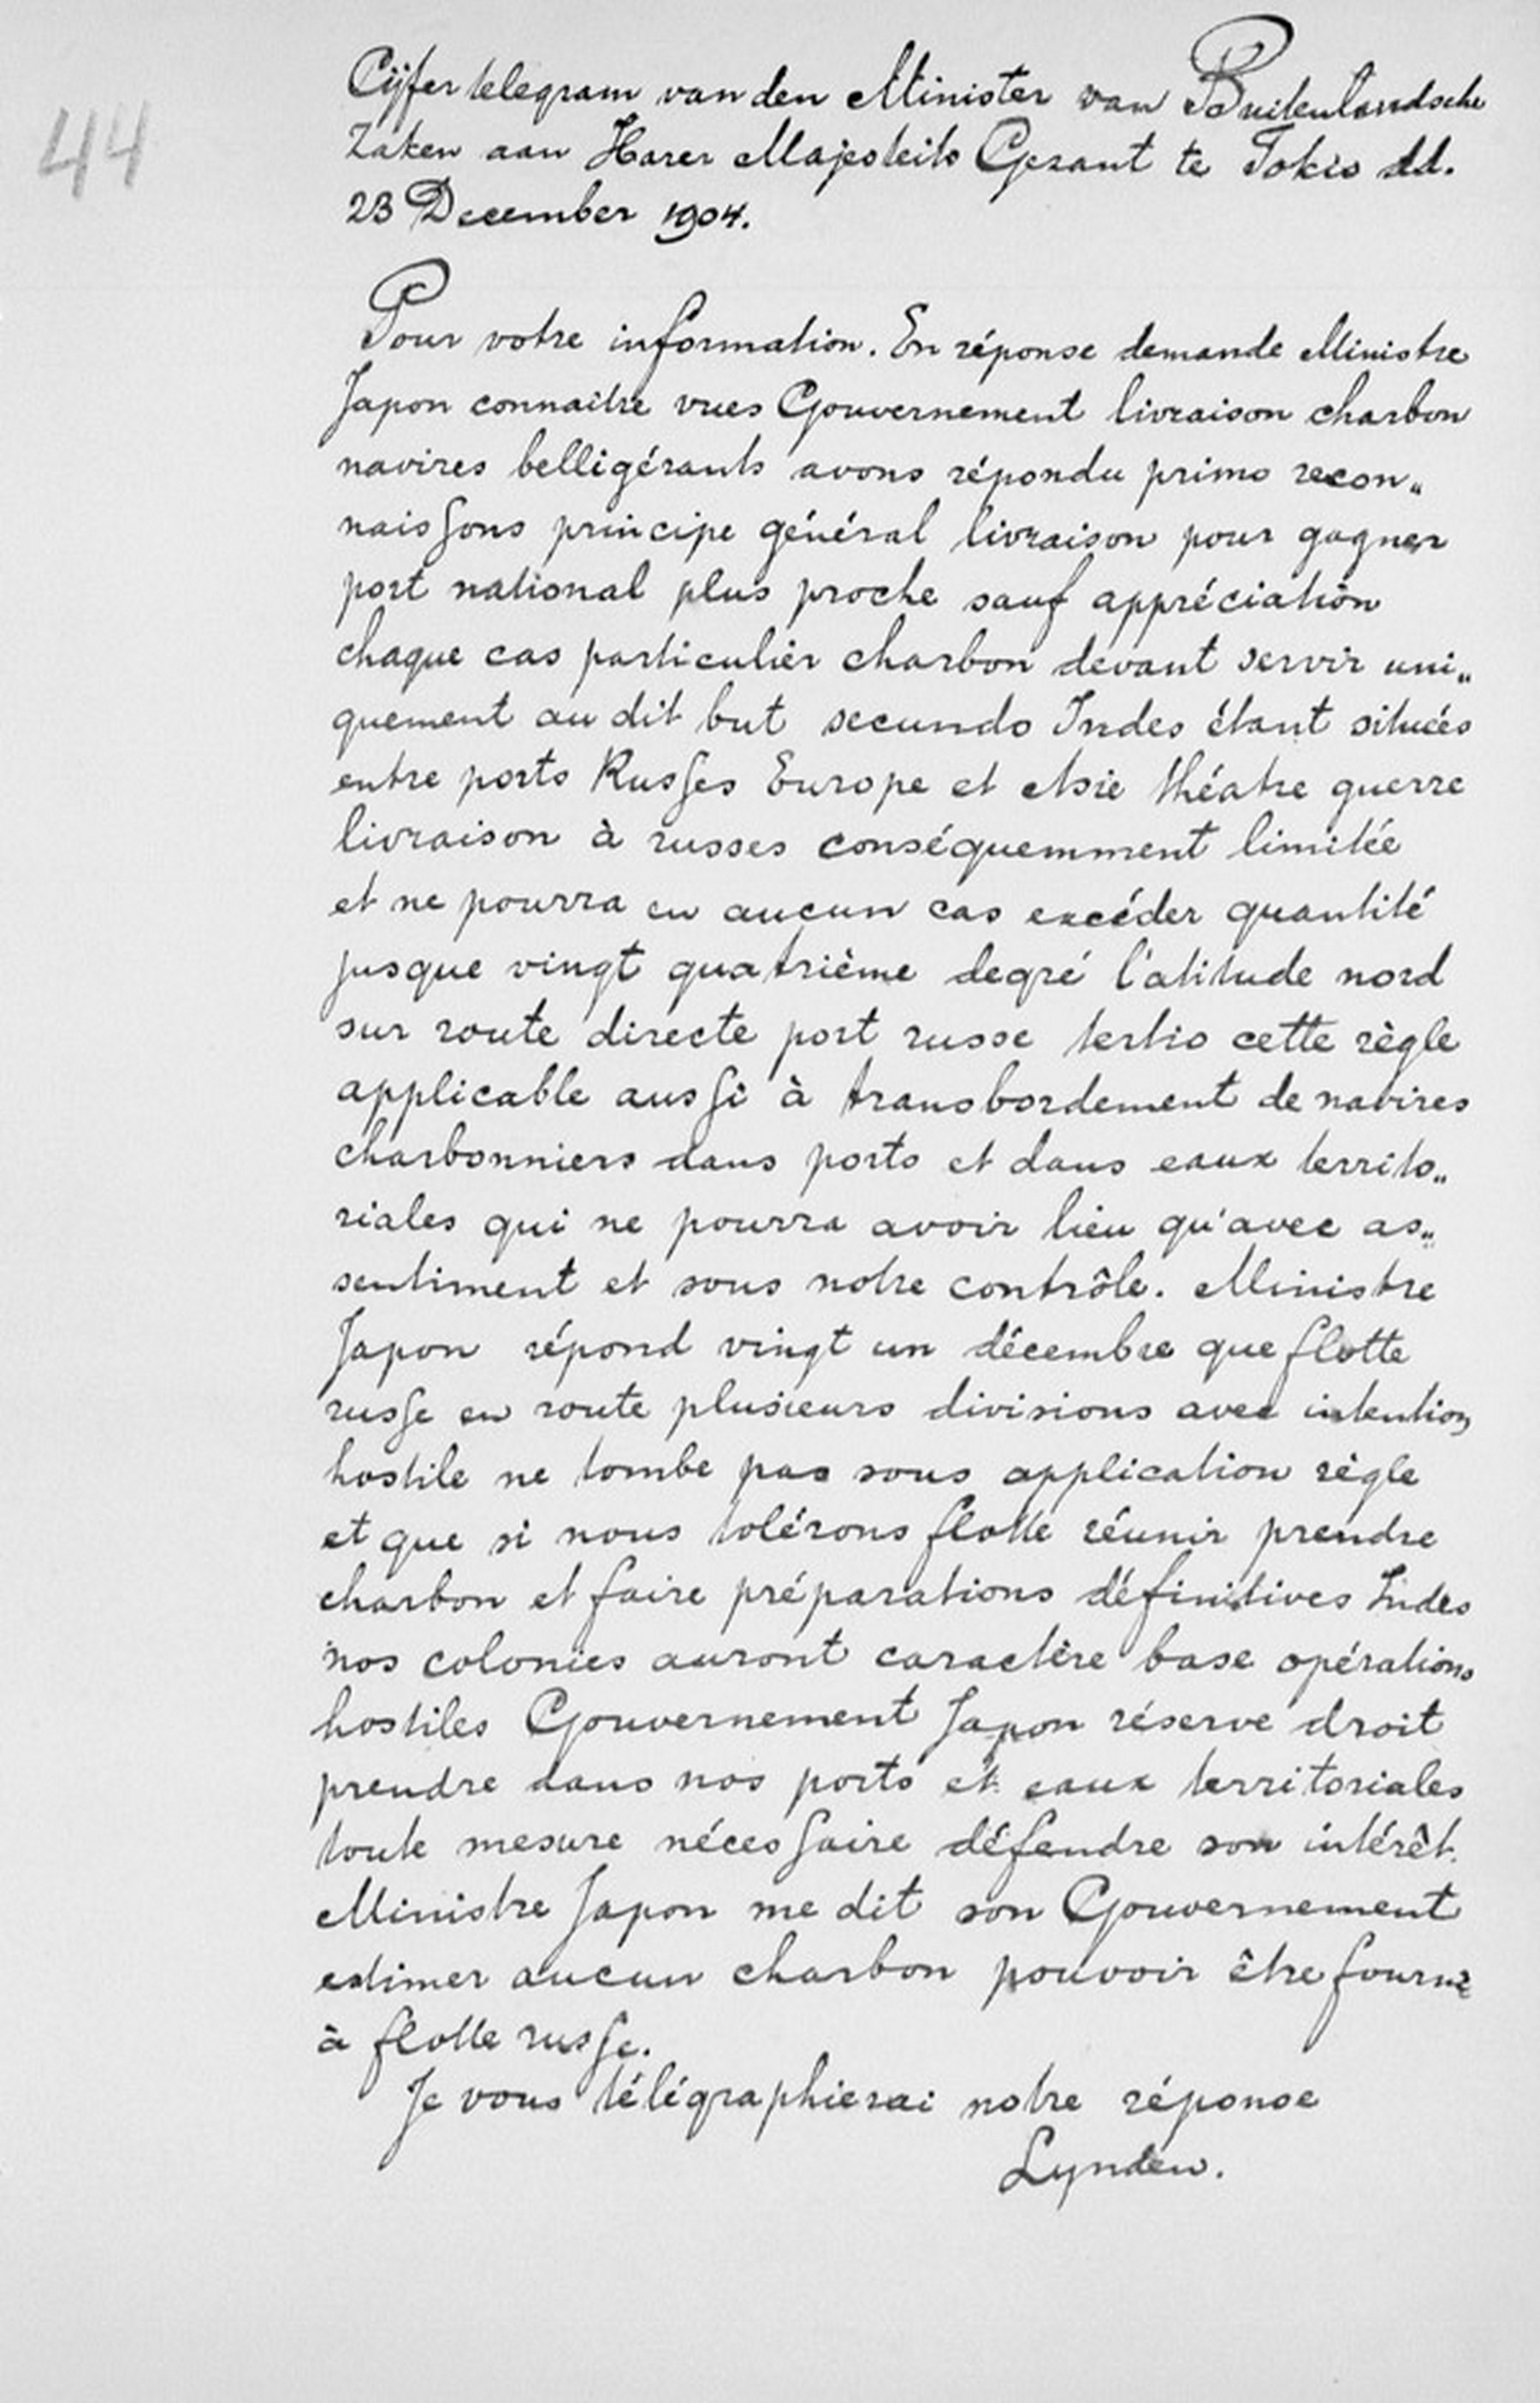 44
Cijfertelegram van den Minister van Buitenlandsche
Zaken aan Harer Majesteits Gezant te Tokio dd.
23 December 1904.
Pour votre information. En réponse demande Ministre
Japon connaitre vues Gouvernement livraison charbon
navires belligérants avons répondu primo recon„
naissons principe général livraison pour gagner
port national plus proche sauf appréciation
chaque cas particulier charbon devant servir uni„
quement au dit but secundo Indes étant situées
entre ports Russes Europe et Asie théatre guerre
livraison à russes conséquemment limitée
et ne pourra en aucun cas excéder quantité
jusque vingt quatrième degré l'atitude nord
sur route directe port russe tertio cette règle
applicable aussi à transbordement de navires
charbonniers dans ports et dans eaux territo„
riales qui ne pourra avoir lieu qu'avec as„
sentiment et sous notre contrôle. Ministre
Japon répond vingt un décembre que flotte
russe en route plusieurs divisions avec intention
hostile ne tombe pas sous application règle
et que si nous tolérons flotte réunir prendre
charbon et faire préparations définitives Indes
nos colonies auront caractère base opérations
hostiles Gouvernement Japon réserve droit
prendre dans nos ports et eaux territoriales
toute mesure nécessaire défendre son intérêt.
Ministre Japon me dit son Gouvernement
estimer aucun charbon pouvoir être fourni
à flotte russe.
Je vous télégraphierai notre réponse
Lynden.